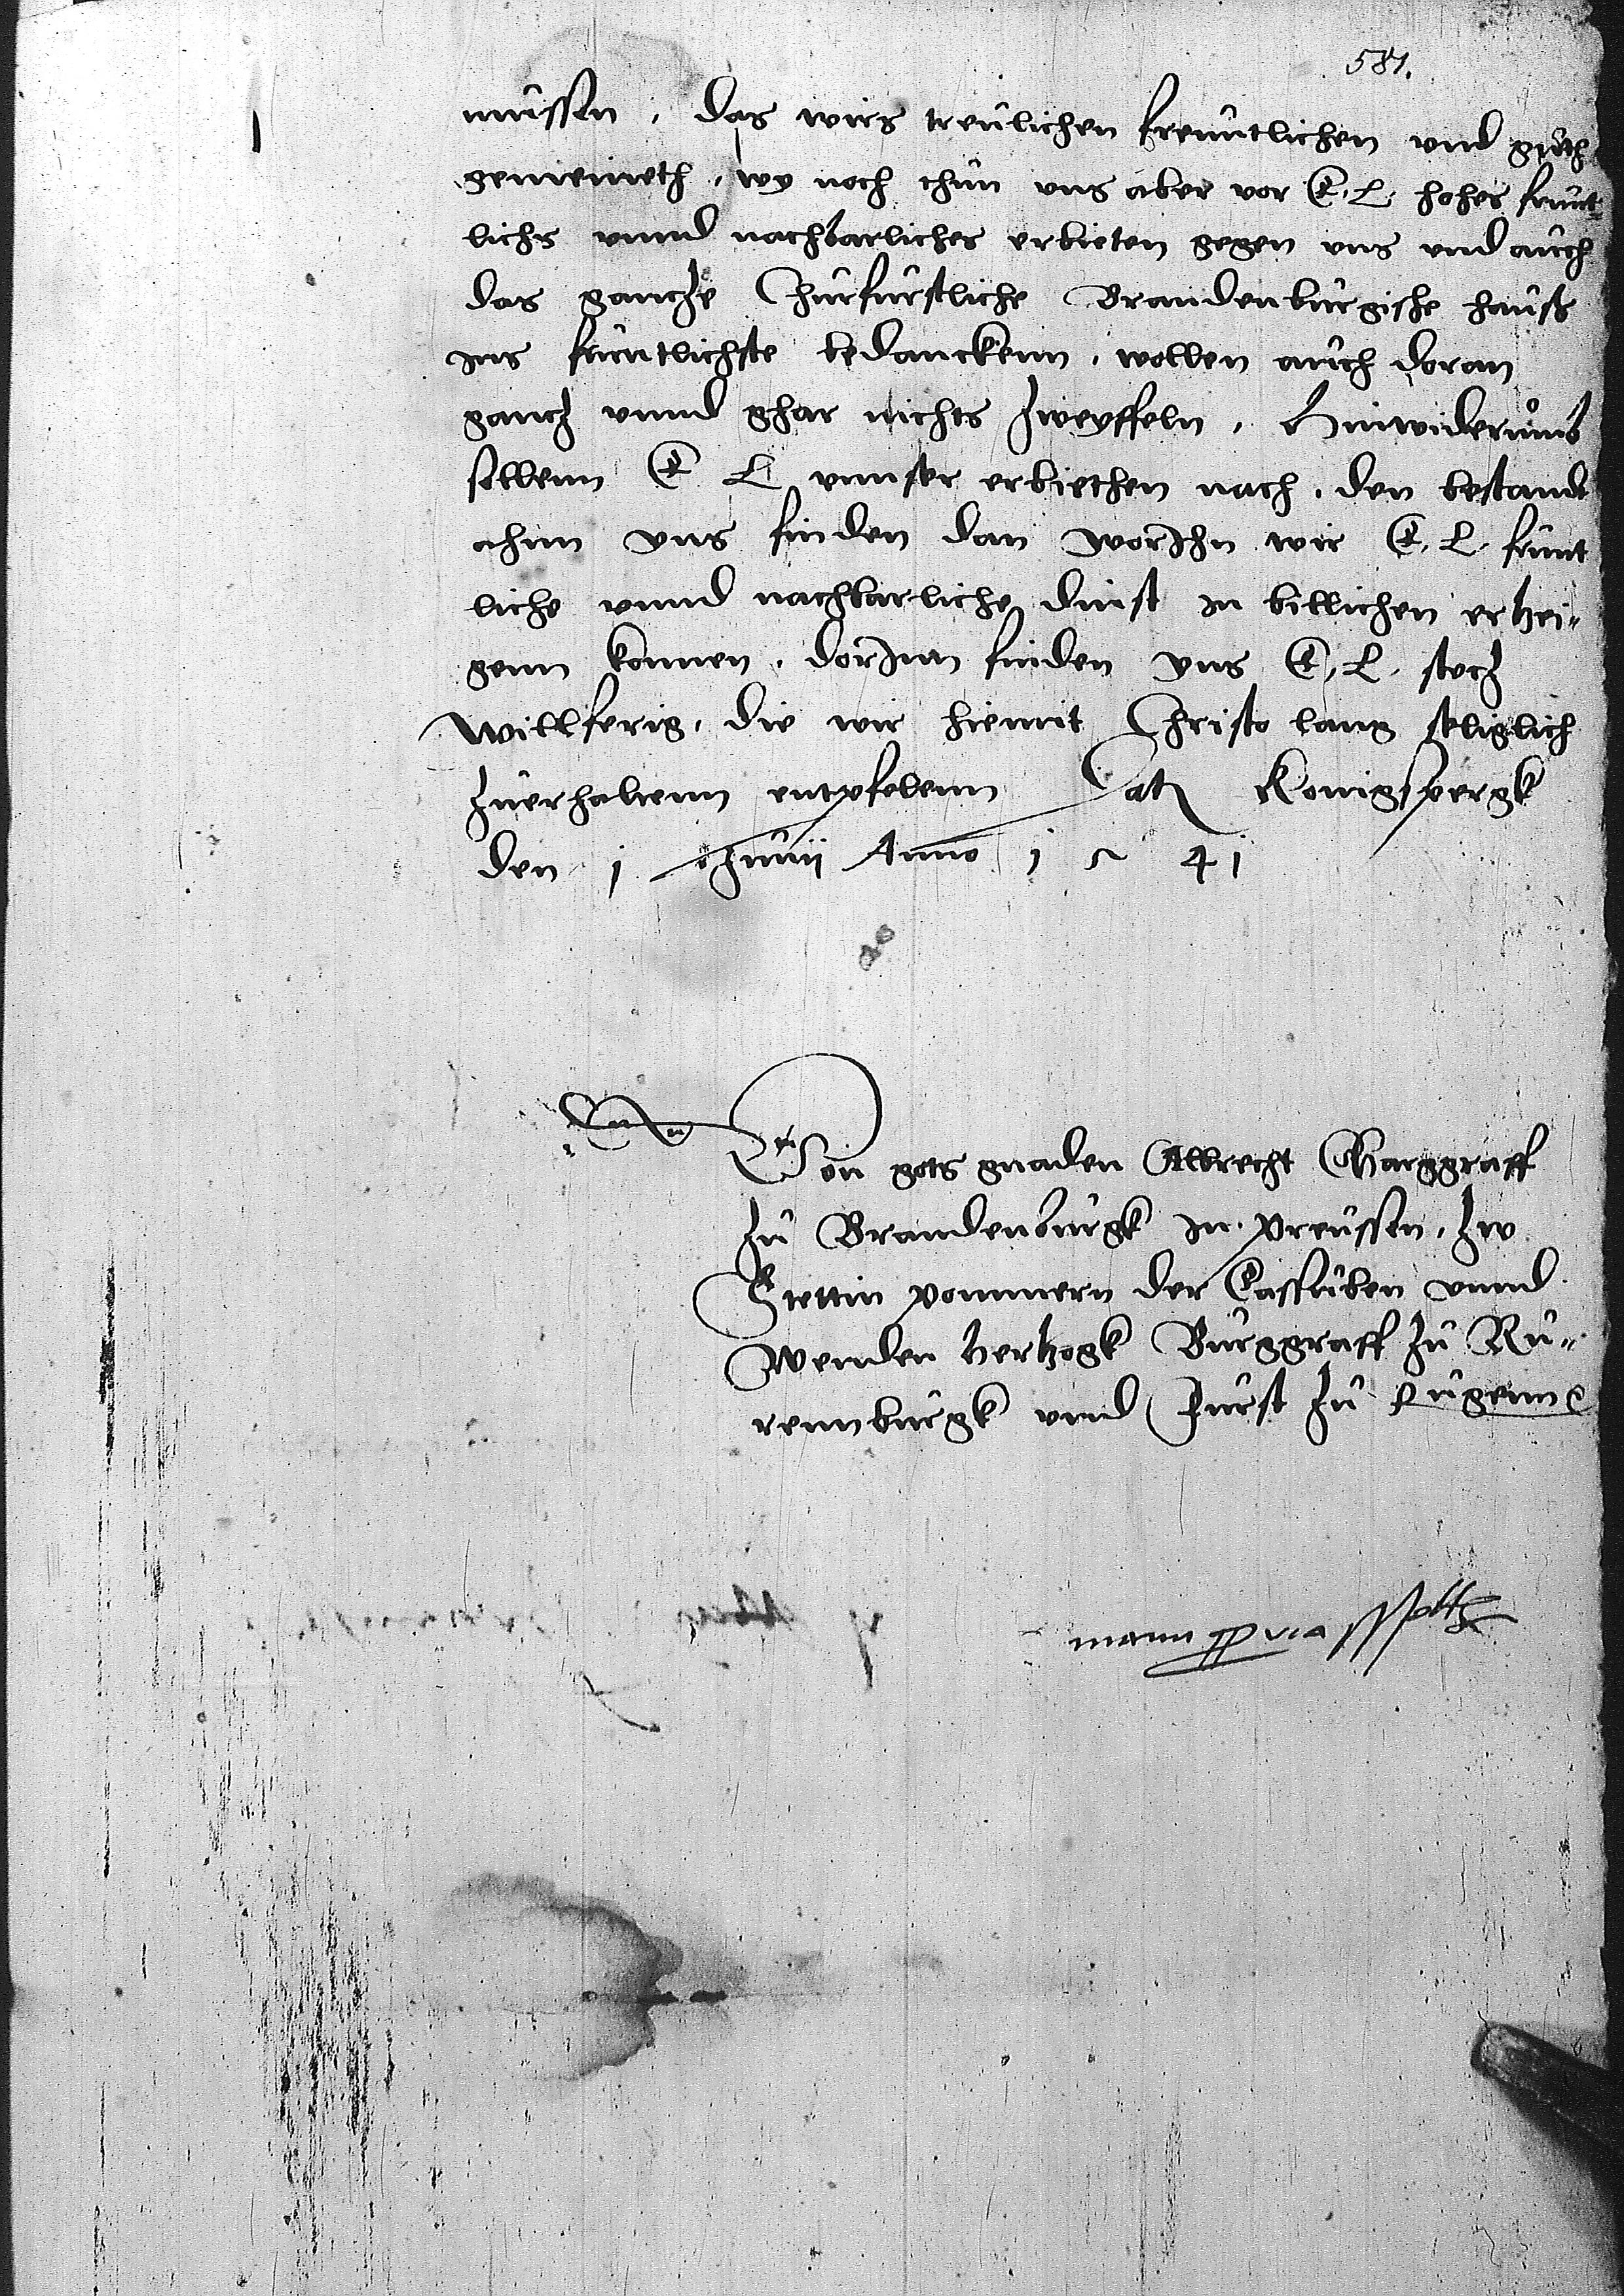 581.
mûssen, das wirs treûlichen freûntlichen vnd gûth
gemeineth, wy noch thûn vns aber vor E. L. hohes frûnt-
lichs vnnd nachbarliches erbieten gegen vns vnd aûch
das gancze Chûrfûrstliche Brandenbûrgische haûss
ins frûntlichste bedanckenn, wollen aûch doran
gancz vnnd ghar nichts zweyffeln, Hinwiderûmb
sollenn E L vnnser erbiethen nach, den bestandt
ahnn vns finden dan worIhn wir E. L. frûnt
liche vnnd nachbarliche dinst in billichen erzei-
genn konnen, dorInn finden vns E. L. stecz
willferig, die wir hiemit Christo lang seliglich
zûerhaltenn entpfelenn Datū Konigspergk
den 1 Junii Anno 1 5 41
Von gots gnaden Albrecht Marggraff
zû Brandenbûrgk in preûssen, zw
Stettin pommern der Cassûben vnnd
Wenden Hertzogk Bûrggraff zû Nû-
rennbûrgk vnnd Fûrst zû Rûgenn
manu ppria sst